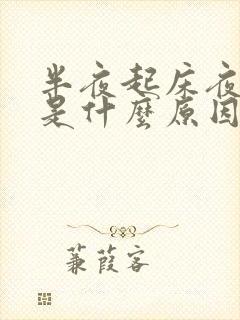 半夜起床夜
是什麼原因
蒹葭客